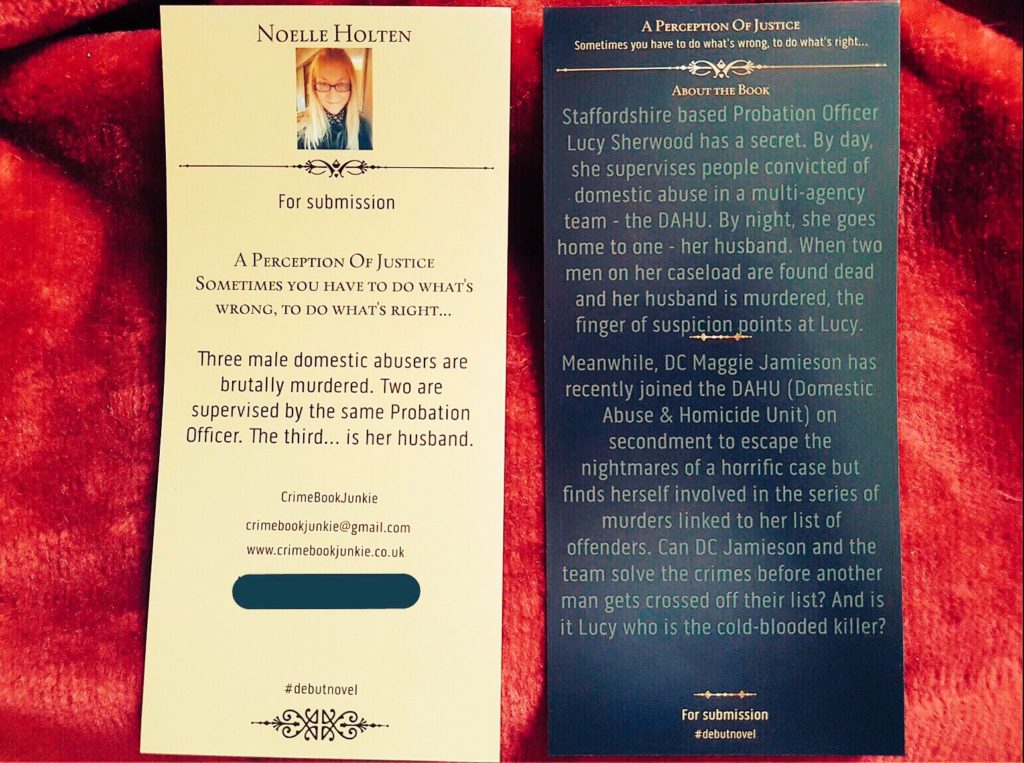 NOELLE HOLTEN
For submission
A PERCEPTION OF JUSTICE
SOMETIMES YOU HAVE TO DO WHAT'S
WRONG, TO DO WHAT'S RIGHT...
Three male domestic abusers are
brutally murdered. Two are
supervised by the same Probation
Officer. The third... is her husband.
CrimeBookJunkie
crimebookjunkie@gmail.com
www.crimebookjunkie.co.uk
#debutnovel
A PERCEPTION OF JUSTICE
Sometimes you have to do what's wrong, to do what's right...
ABOUT THE BOOK
Staffordshire based Probation Officer
Lucy Sherwood has a secret. By day,
she supervises people convicted of
domestic abuse in a multi-agency
team - the DAHU. By night, she goes
home to one - her husband. When two
men on her caseload are found dead
and her husband is murdered, the
finger of suspicion points at Lucy.
Meanwhile, DC Maggie Jamieson has
recently joined the DAHU (Domestic
Abuse & Homicide Unit) on
secondment to escape the
nightmares of a horrific case but
finds herself involved in the series of
murders linked to her list of
offenders. Can DC Jamieson and the
team solve the crimes before another
man gets crossed off their list? And is
it Lucy who is the cold-blooded killer?
For submission
#debutnovel